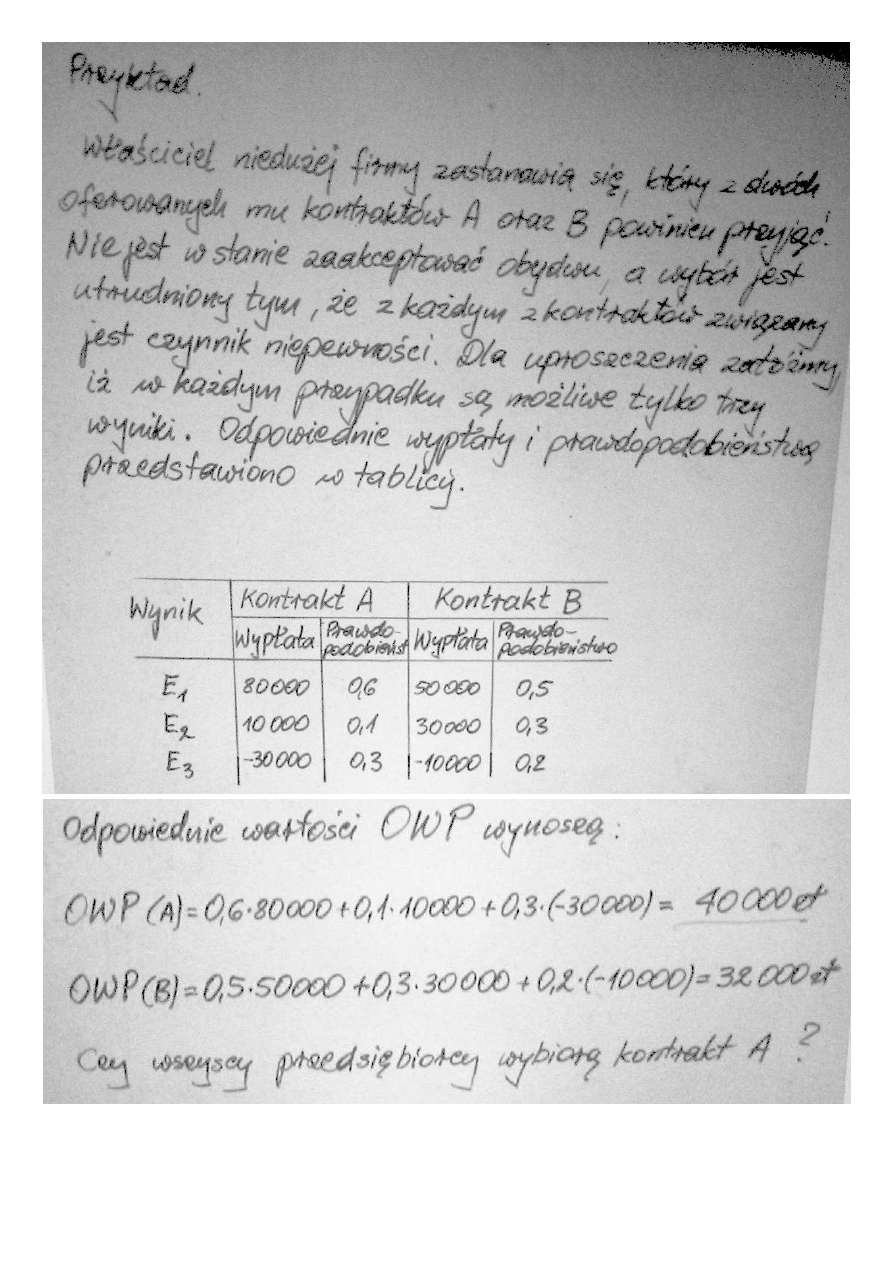 Przykład.
Właściciel niedużej firmy zastanawia się, który z dwóch
oferowanych mu kontraktów A oraz B powinien przyjąć.
Nie jest w stanie zaakceptować obydwu, a wybór jest
utrudniony tym, że z każdym z kontraktów związany
jest czynnik niepewności. Dla uproszczenia załóżmy,
iż w każdym przypadku są możliwe tylko trzy
wyniki. Odpowiednie wypłaty i prawdopodobieństwa
przedstawiono w tablicy.
Wynik | Kontrakt A | Kontrakt B
Wypłata | Prawdo-podobieńst | Wypłata | Prawdo-podobieństwo
E1 | 80000 | 0,6 | 50000 | 0,5
E2 | 10000 | 0,1 | 30000 | 0,3
E3 | -30000 | 0,3 | -10000 | 0,2
Odpowiednie wartości OWP wynoszą:
OWP (A) = 0,6·80000 + 0,1·10000 + 0,3·(-30000) = 40000 zł
OWP (B) = 0,5·50000 + 0,3·30000 + 0,2·(-10000) = 32000 zł
Czy wszyscy przedsiębiorcy wybiorą kontrakt A ?